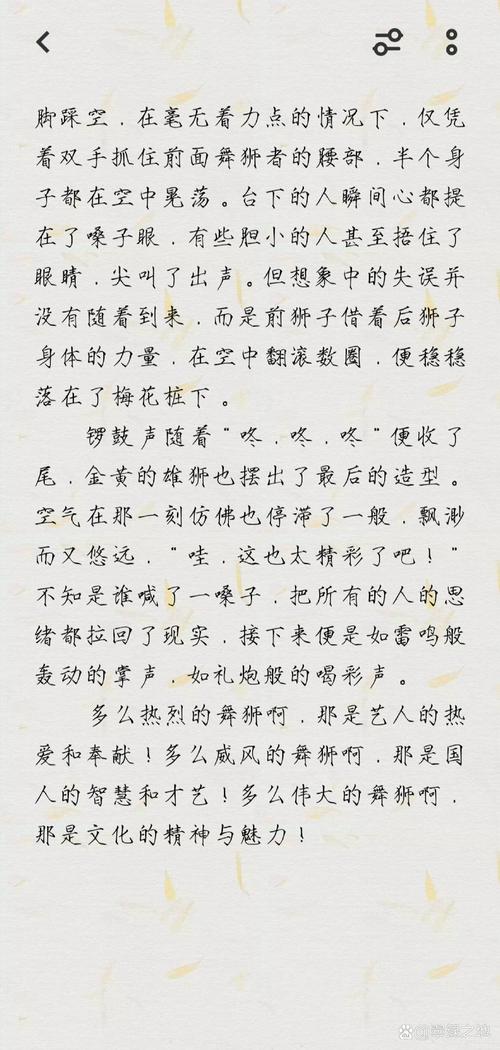 脚踩空，在毫无着力点的情况下，仅凭
着双手抓住前面舞狮者的腰部，半个身
子都在空中晃荡。台下的人瞬间心都提
在了嗓子眼，有些胆小的人甚至捂住了
眼睛，尖叫了出声。但想象中的失误并
没有随着到来，而是前狮子借着后狮子
身体的力量，在空中翻滚数圈，便稳稳
落在了梅花桩下。
锣鼓声随着“咚，咚，咚”便收了
尾，金黄的雄狮也摆出了最后的造型。
空气在那一刻仿佛也停滞了一般，飘渺
而又悠远，“哇，这也太精彩了吧！”
不知是谁喊了一嗓子，把所有的人的思
绪都拉回了现实，接下来便是如雷鸣般
轰动的掌声，如礼炮般的喝彩声。
多么热烈的舞狮啊，那是艺人的热
爱和奉献！多么威风的舞狮啊，那是国
人的智慧和才艺！多么伟大的舞狮啊，
那是文化的精神与魅力！